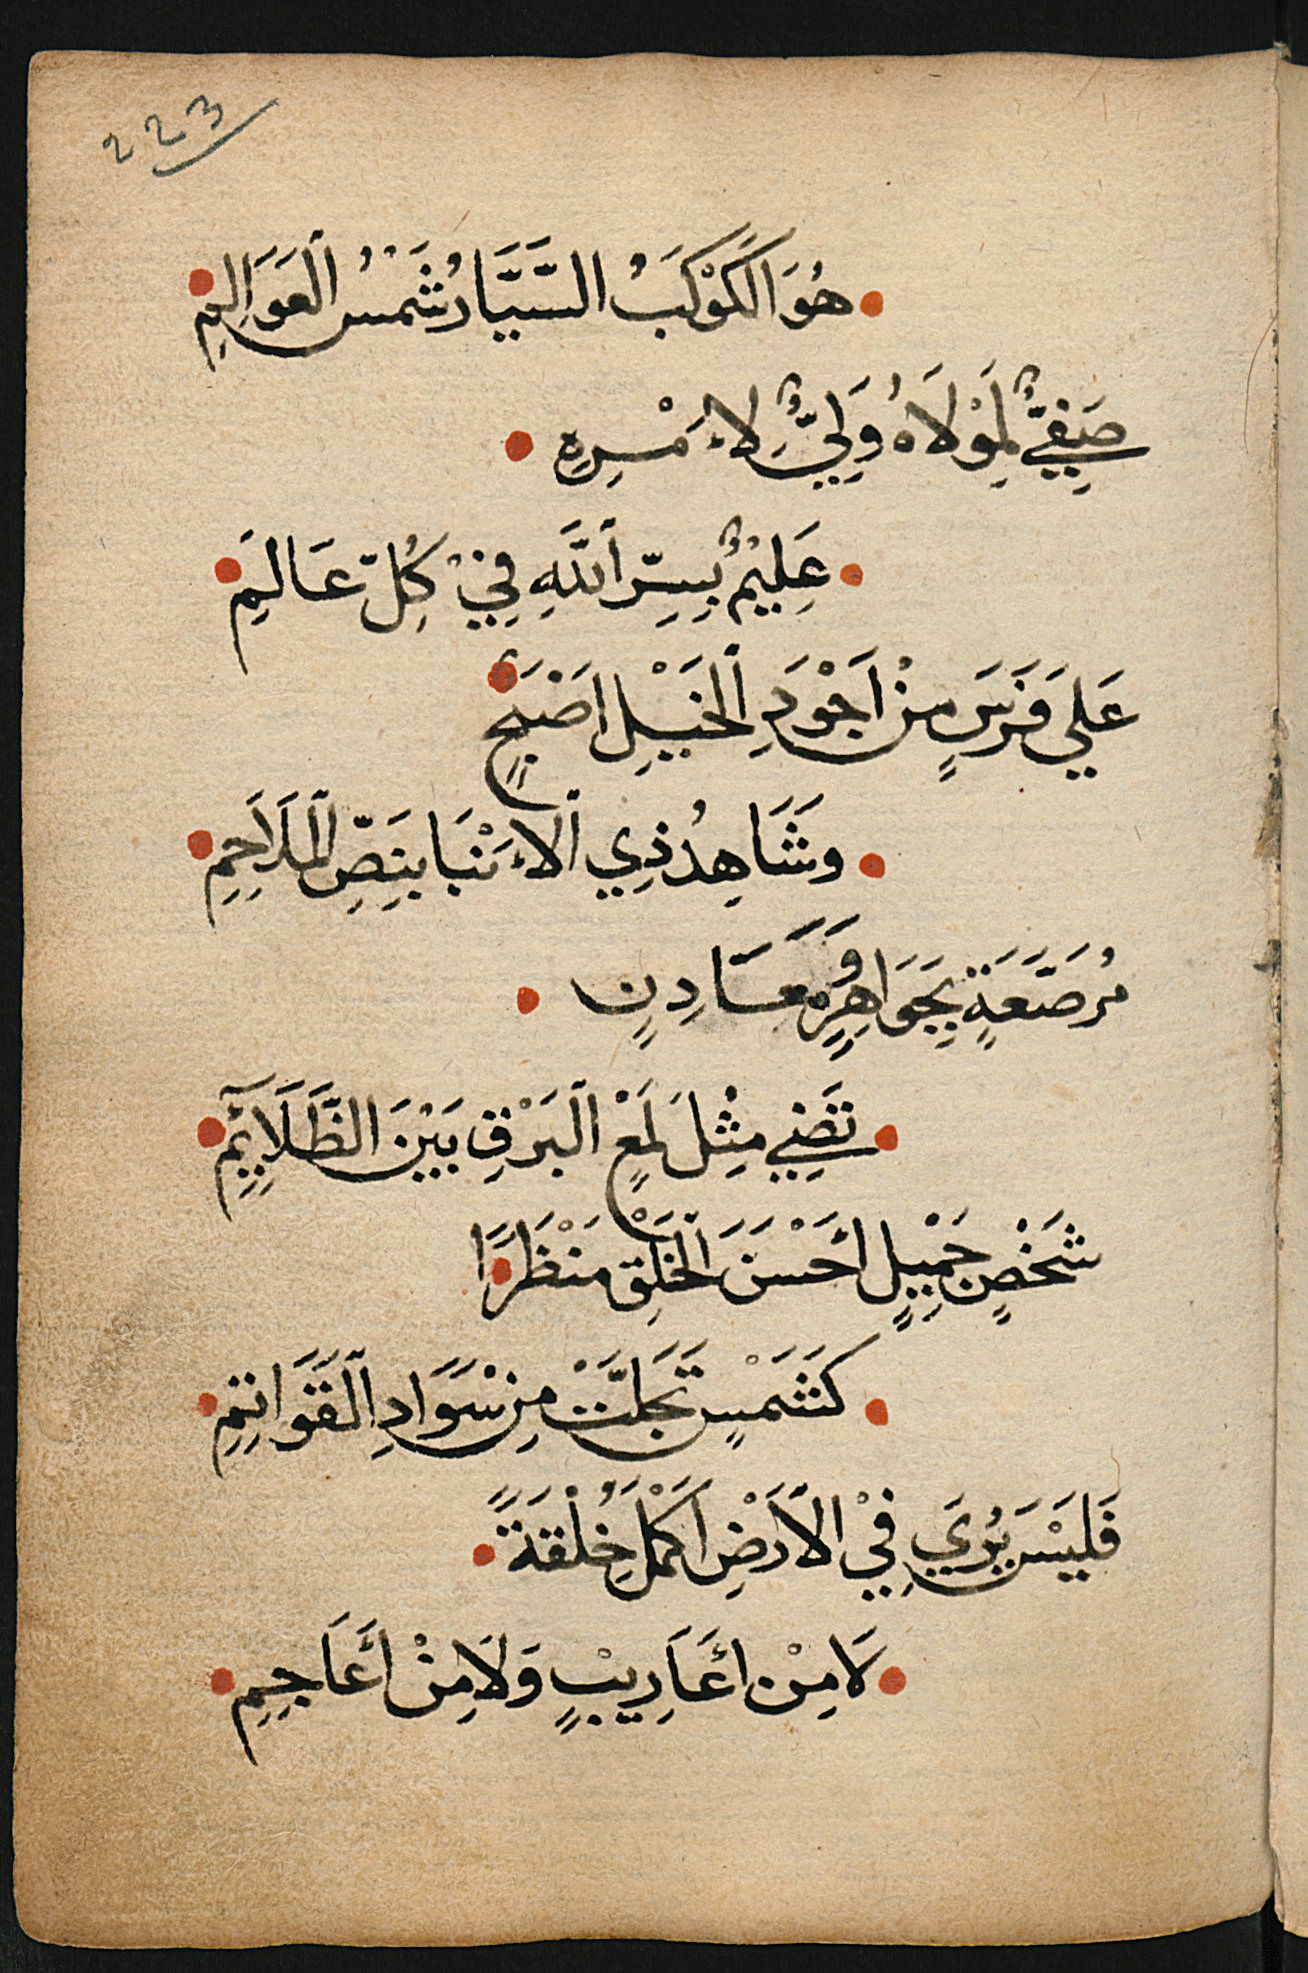 223
هُوَ الْكَوْكَبُ السَّيَّارُ شَمْسُ الْعَوَالِمِ
صَفِيٌّ لِمَوْلَاهُ وَلِيٌّ لِاَمْرِهِ
عَلِيْمٌ بِسِرِّ اللَّهِ فِيْ كُلِّ عَالَمِ
عَلَي فَرَسٍ مِنْ اَجْوَدِ الْخَيْلِ اَصْبَحٍ
وَشَاهِدُ ذِي الْاَنْبَا بِنَصِّ الْمَلَاحِمِ
مُرَصَّعَةٍ بِجَوَاهِرٍ وَمَعَادِنٍ
تَضِيي مِثْلَ لَمْعِ الْبَرْقِ بَيْنَ الظَّلَايِمِ
شَخْصٍ جَمِيْلٍ أَحْسَنَ الْخَلْقِ مَنْظَرًا
كَشَمْسٍ تَجَلَّتْ مِنْ سَوَادِ الْقَوَاتِمِ
فَلَيْسَ يُرَي فِيْ الْاَرْضِ اَكْمَلُ خِلْقَةً
لَا مِنْ أَعَارِيبٍ وَلَا مِنْ أَعَاجِمِ